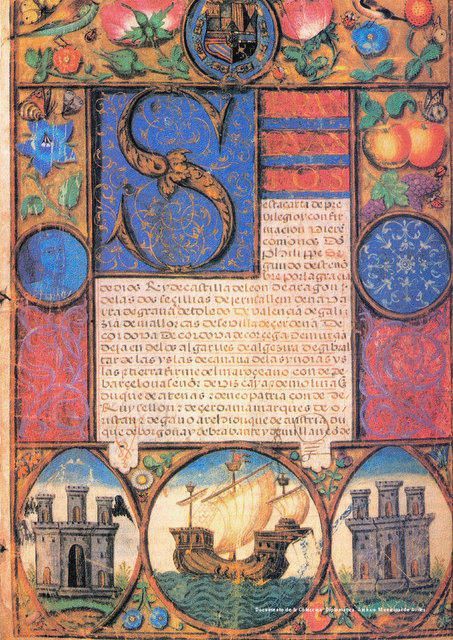 S
esta carta de pre
vilegio y confir
macion vierē
como nos Dō
phelippe Se
gundo deste nō
bre por la gracia
de dios Rey de castilla de leon de aragon
de las dos seçilias de jerusallem de nava
rra de granada de toledo de valençia de gali
zia de mallorcas de sevilla de çerdeña De
cordova De corçega de murçia
de jaen de los algarves de algezira de gibal
tar de las yslas de canaria de las yndias ys
las e tierra firme del mar oçeano conde de
barçelona señor de vizcaya e de molina
Duque de atenas e de neopatria conde de
Ruysellon e de çerdania marques de o
ristan e de goçiano archiduque de austria du
que de borgoña y de brabante y de milan cōde
Documento de la Colección Diplomática. Archivo Municipal de Avilés